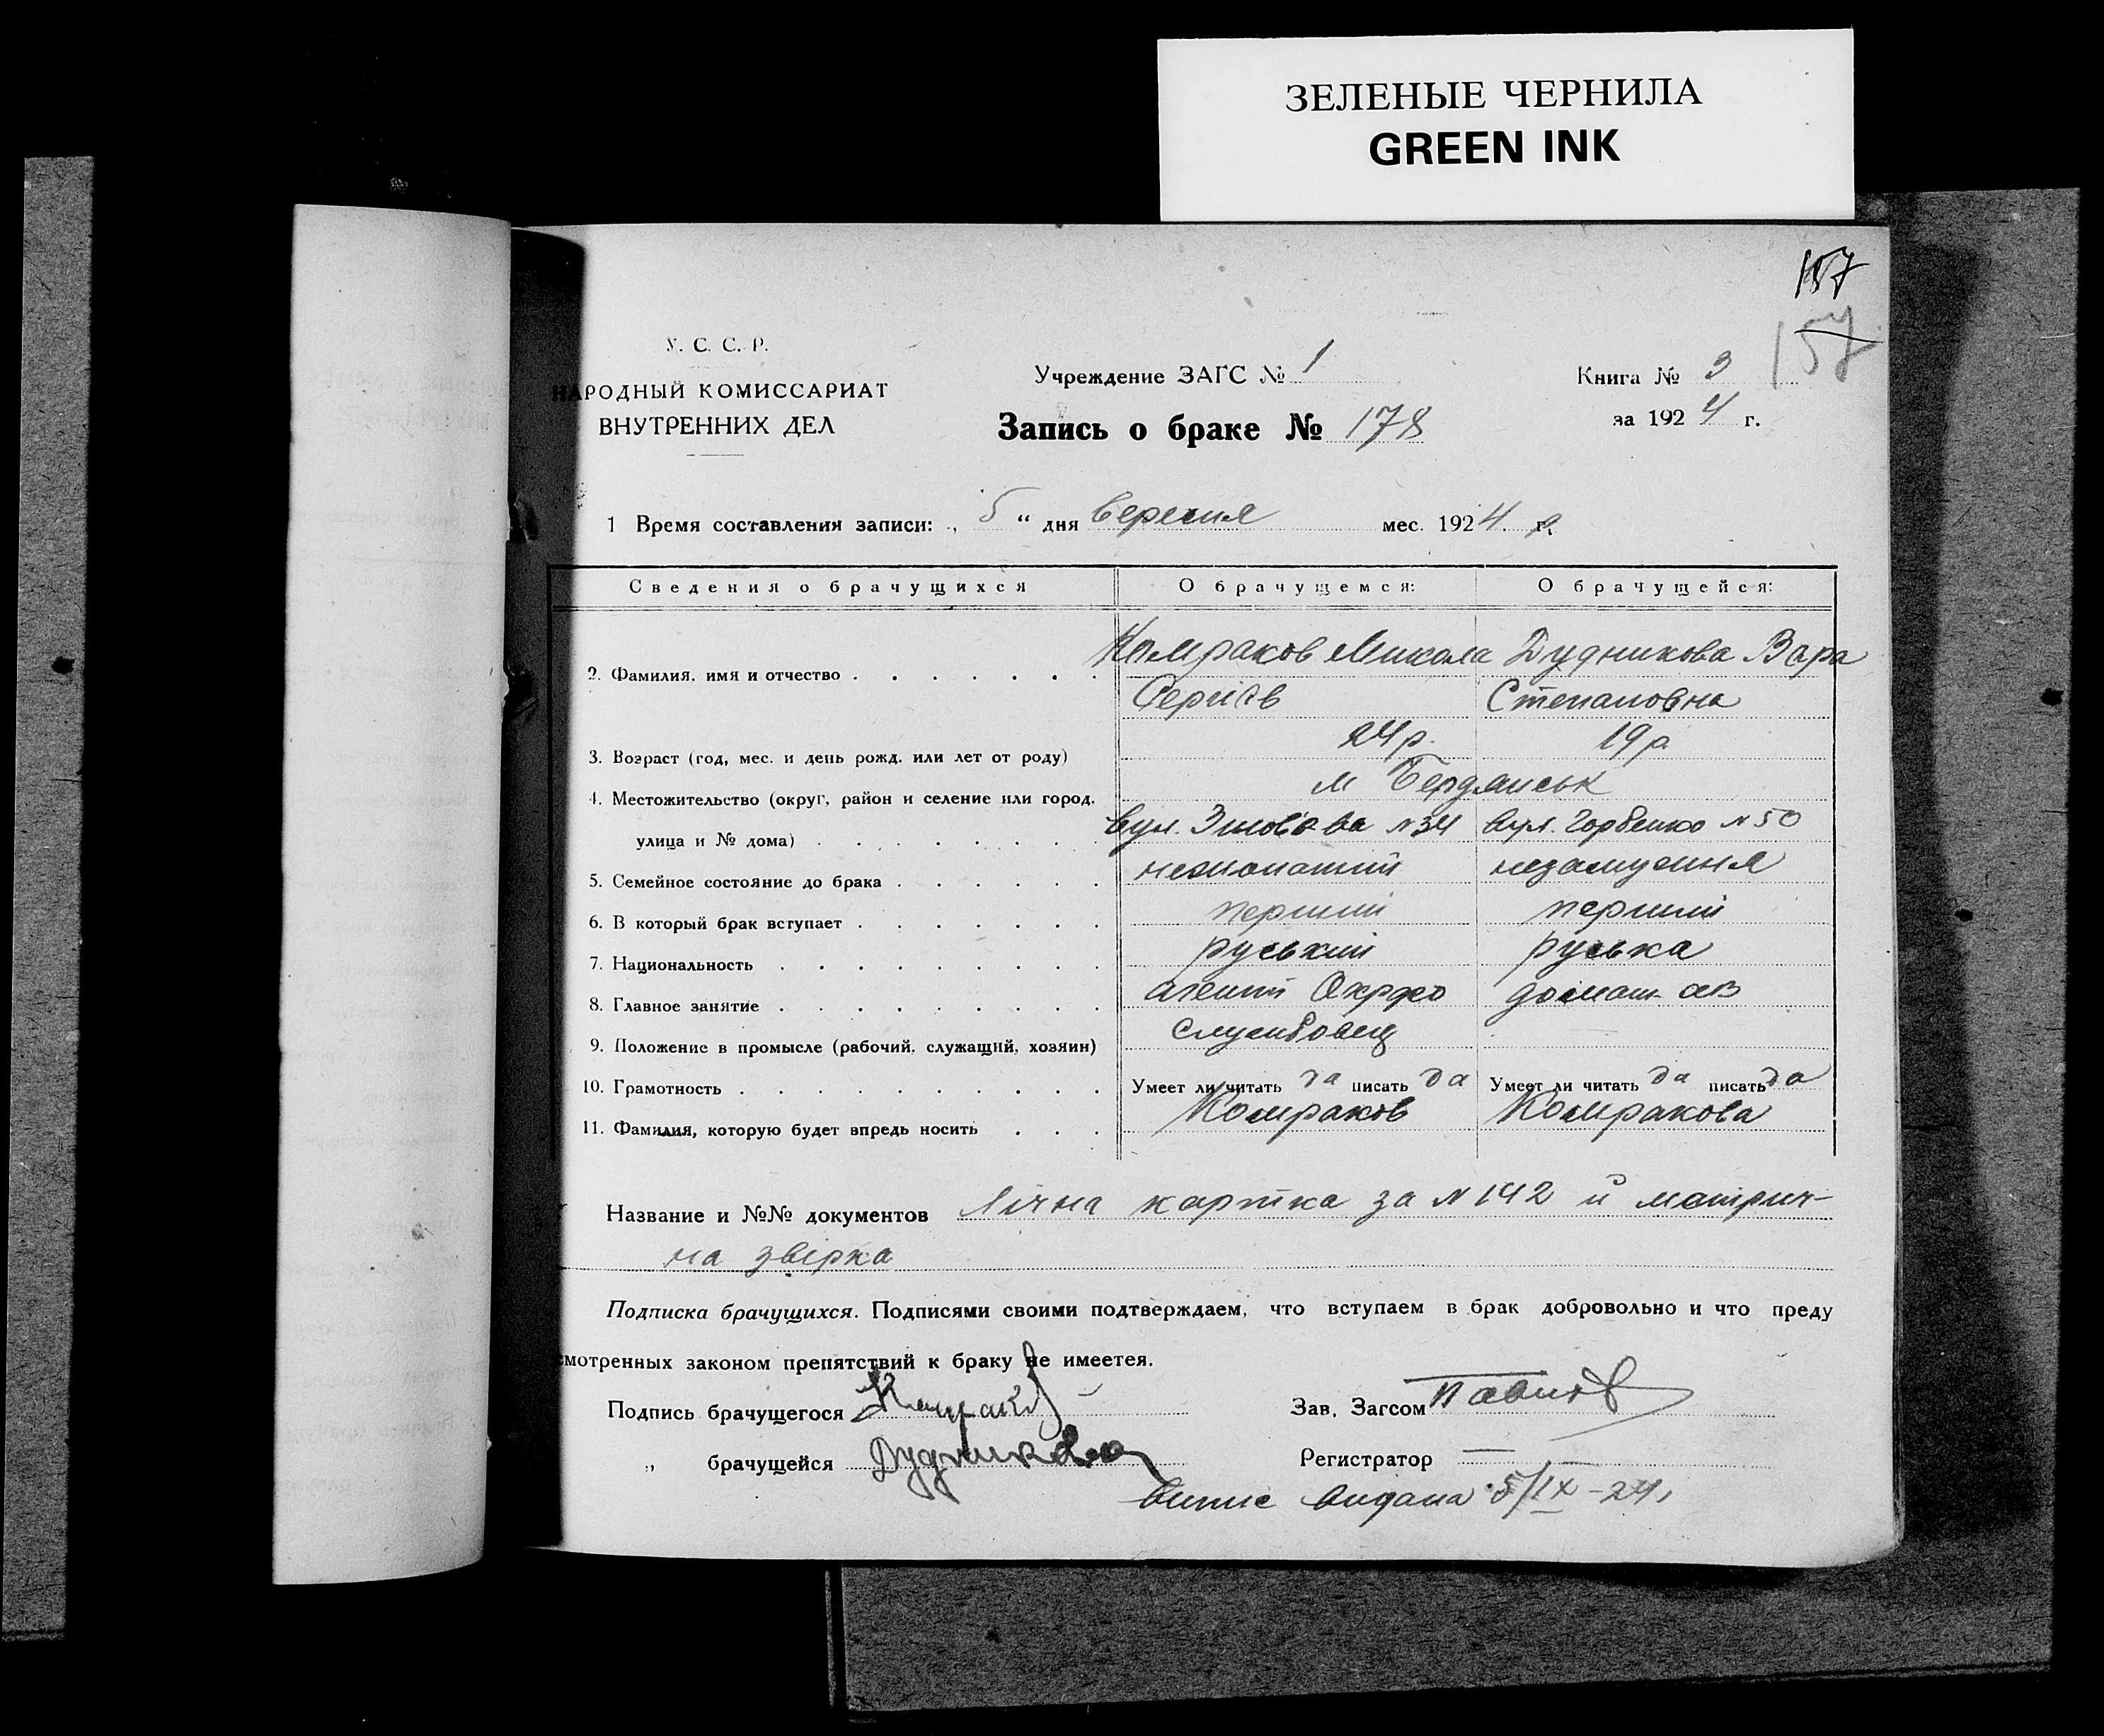 ЗЕЛЕНЫЕ ЧЕРНИЛА
GREEN INK
157
157
У. С. С. Р.
НАРОДНЫЙ КОМИССАРИАТ
ВНУТРЕННИХ ДЕЛ
Учреждение ЗАГС № 1
Запись о браке № 178
Книга № 3
за 1924 г.
1 Время составления записи: „ 5 “ дня вересня мес. 1924 р.
Сведения о брачущихся О брачущемся: О брачущейся:
2. Фамилия, имя и отчество Комраков Микола Дудникова Вара
Сергієв Степановна
3. Возраст (год, мес. и день рожд. или лет от роду) 24 р. 19 р.
4. Местожительство (округ, район и селение или город, м Бердянськ
улица и № дома) вул. №34 вул. Горбенко №50
5. Семейное состояние до брака нежонатий незамужня
6. В который брак вступает перший перший
7. Национальность руський руська
8. Главное занятие агент домаш.
9. Положение в промысле (рабочий, служащий, хозяин) службовец
10. Грамотность Умеет ли читать да писать да Умеет ли читать да писать да
11. Фамилия, которую будет впредь носить Комраков Комракова
Название и №№ документов Лічна картка за №142 й метрич-
на звірка
Подписка брачущихся. Подписями своими подтверждаем, что вступаем в брак добровольно и что преду
смотренных законом препятствий к браку не имеется.
Подпись брачущегося Комраков Зав. Загсом
„ брачущейся Дудникова Регистратор —
Витис видана 5/IX-24